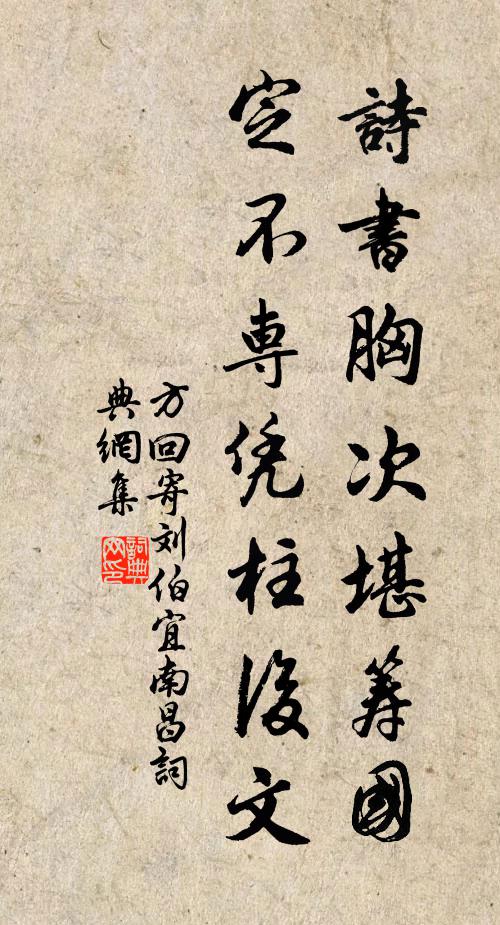 詩書胸次堪筭國
定不専凭柱後文
方回寄刘伯宜南昌詞
典網集
詞典
网印